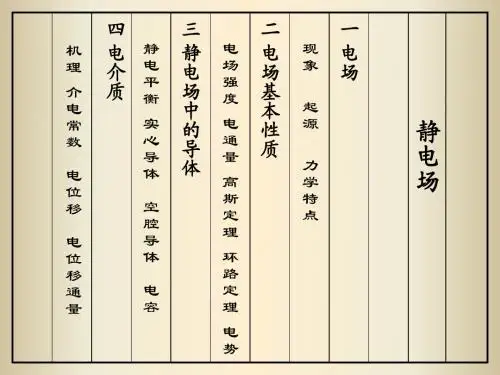 静电场
一 电场
现象 起源 力学特点
二 电场基本性质
电场强度 电通量 高斯定理 环路定理 电势
三 静电场中的导体
静电平衡 实心导体 空腔导体 电容
四 电介质
机理 介电常数 电位移 电位移通量